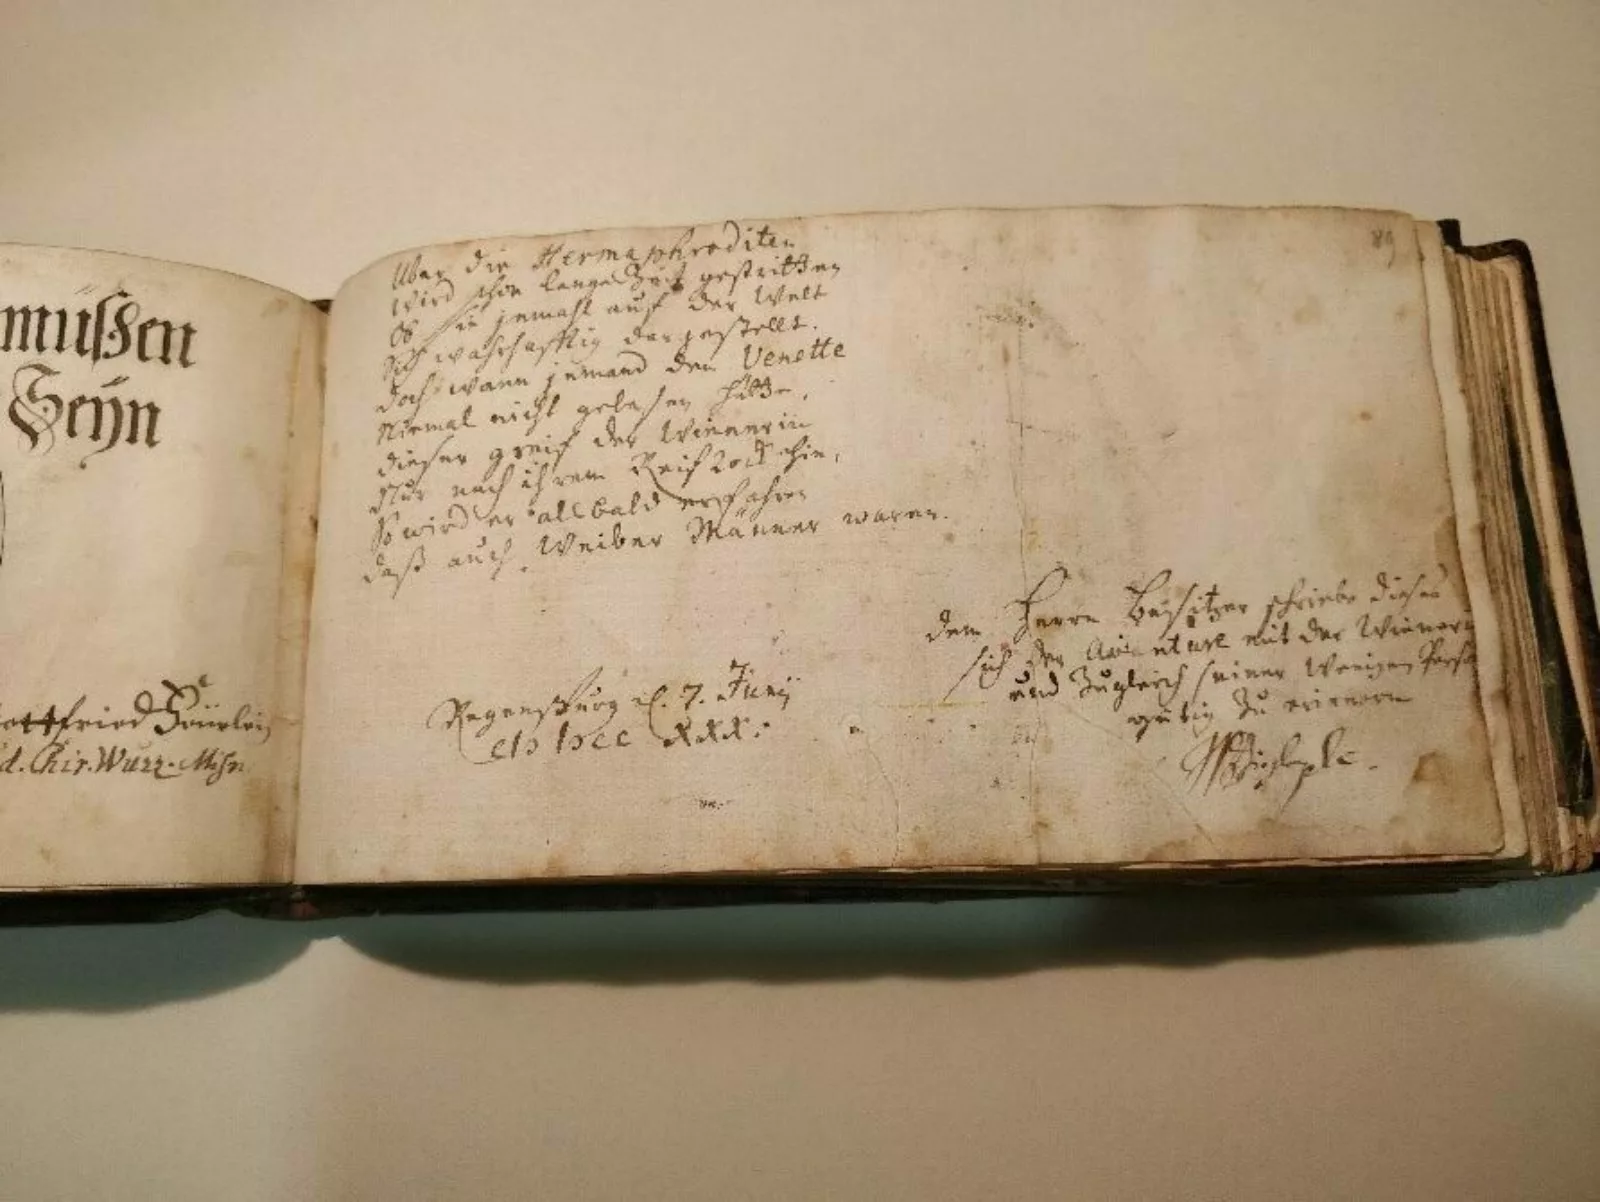 müssen
Seyn
ottfried
d. Chir. Wurz. Misn
89
Uber die Hermaphroditen
wird schon lange Zeit gestritten
Ob sie jemahl auf der Welt
Sich wahrhafftig dargestellt.
doch wann jemand den Venette
Niemal nicht gelesen hätte,
dieser greif der Wienerin
Nur nach ihrem Reifrock hin,
So wird er alsbald erfahren
daß auch Weiber Männer waren.
Regensburg d. 7. Junij
XXX.
dem Herrn Besitzer schriebe dieses
sich der Avanture mit der Wienerin
und zugleich seiner wenigen Person
gütig zu erinnern